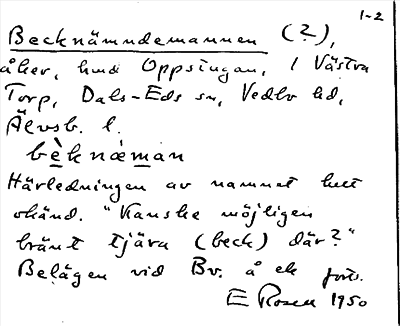 1-2
Becknämndemannen (?),
åker, hmd Oppstugan, i Västra
Torp, Dals-Eds sn, Vedbo hd,
Älvsb. l.
bèknæ̀man
Härledningen av namnet helt
okänd. "Kanske möjligen
bränt tjära (beck) där?"
Belägen vid Bv. å ek forts.
E Rosell 1950